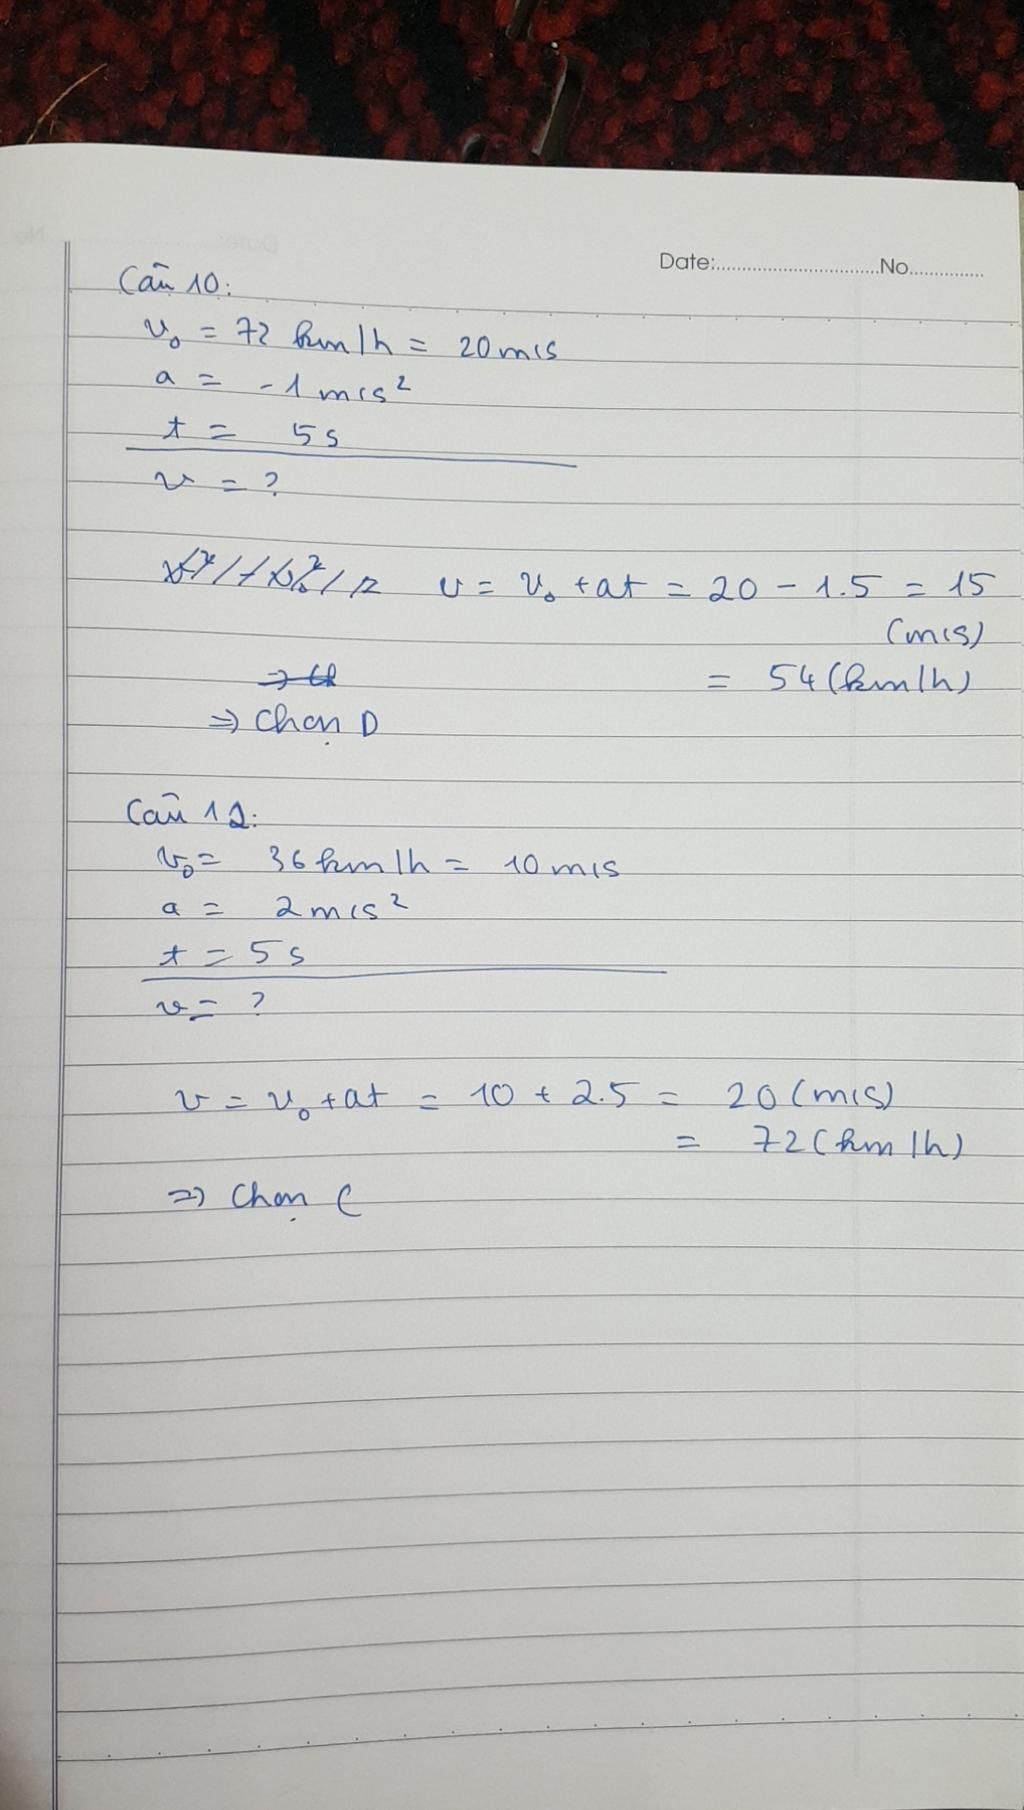 Date:..............................No...............
Câu 10:
v₀ = 72 km/h = 20 m/s
a = -1 m/s²
t = 5s
v = ?
v = v₀ + at = 20 - 1.5 = 15
(m/s)
= 54 (km/h)
=> Chọn D
Câu 12:
v₀ = 36 km/h = 10 m/s
a = 2 m/s²
t = 5s
v = ?
v = v₀ + at = 10 + 2.5 = 20 (m/s)
= 72 (km/h)
=> Chọn C